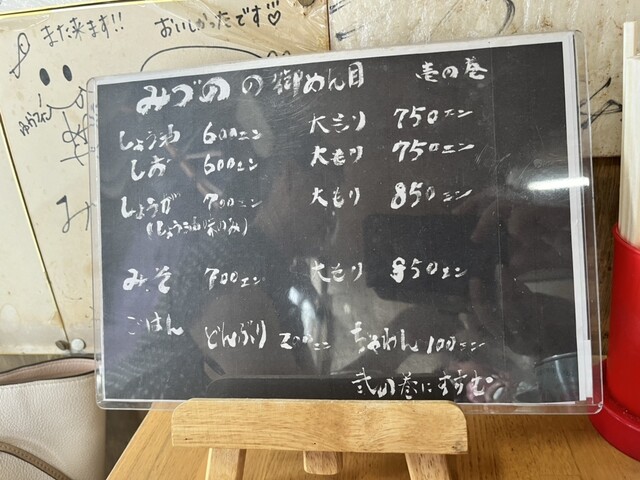 また来ます!!
おいしかったです♡
みづのの御めん目 壱の巻
しょう油 600エン 大もり 750エン
しお 600エン 大もり 750エン
しょうが 700エン 大もり 850エン
(しょう油味のみ)
みそ 700エン 大もり 850エン
ごはん どんぶり 200エン ちゃわん 100エン
弐の巻にすすむ